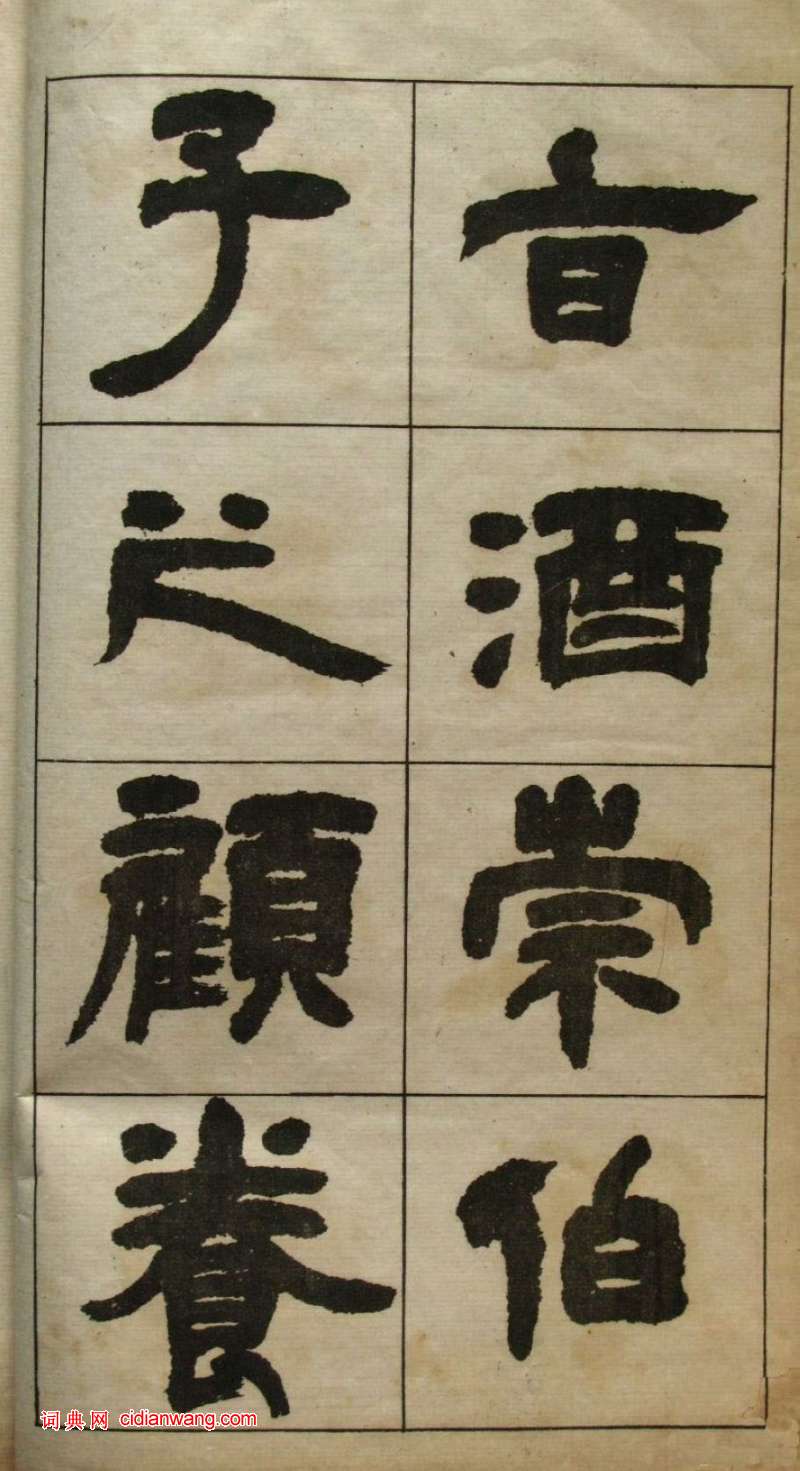 旨酒崇伯
子之顧養
词典网 cidianwang.com